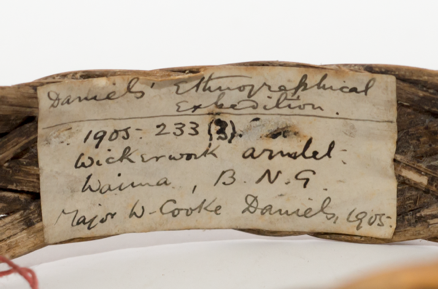 Daniels' Ethnographical
Expedition.
1905- 233 (3)
Wickerwork armlet.
Waima, B. N. G.
Major W. Cooke Daniels, 1905.